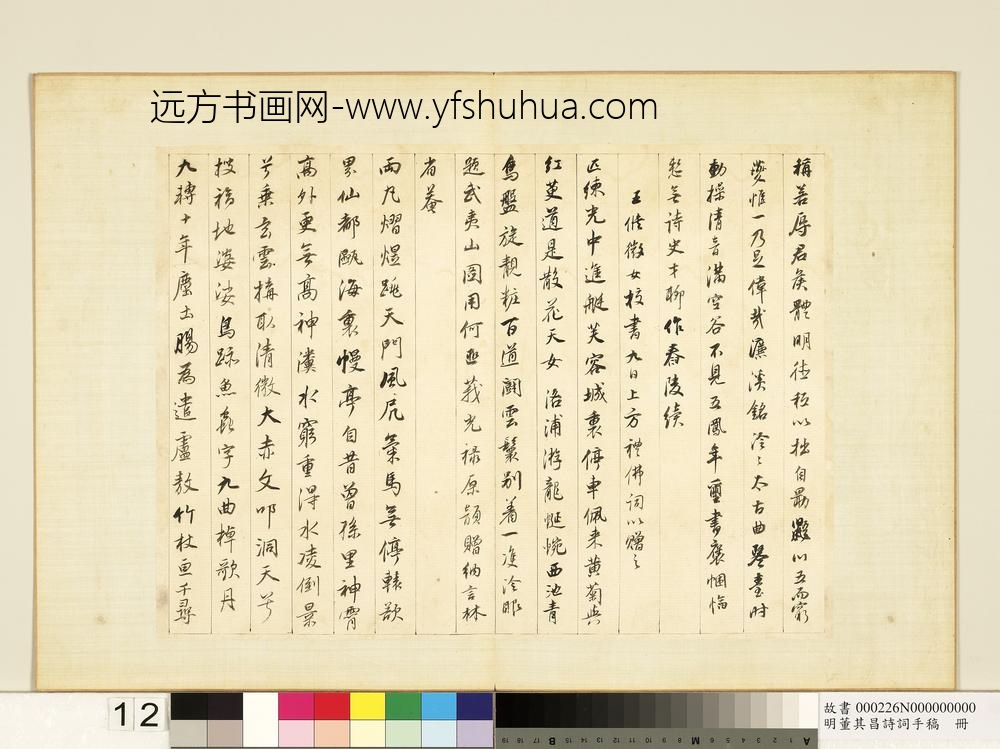 远方书画网-www.yfshuhua.com
稱善辱君侯體明德極以拙自勗 以五而窮
夔惟一乃足偉哉濂溪銘泠泠太古曲琴臺時
動操清音滿空谷不見五鳳年璽書褒悃愊
愁無詩史才聊作舂陵續
王修微女校書九日上方禮佛詞以贈之
匹練光中進艇芙容城裏停車佩來黃菊與
紅萸道是散花天女 洛浦游龍婉 西池青
鳥盤旋靚粧百道鬪雲鬟別着一隻冷眼
題武夷山圖用何 莪光祿原韻贈納言林
省菴
兩丸熠熠跳天門風 馬無停轅敨
界仙都瓯海裏幔亭自昔曾孫里神霄
高外更無高神瀵水窮重得水凌倒景
兮乘玄雲搆取清微大赤文叩洞天兮
搜福地婆娑鳥跡魚蟲字九曲棹歌丹
九轉十年塵土腸為遣盧敖竹杖 千尋
12
B M A
故書 000226N000000000
明董其昌詩詞手稿 冊